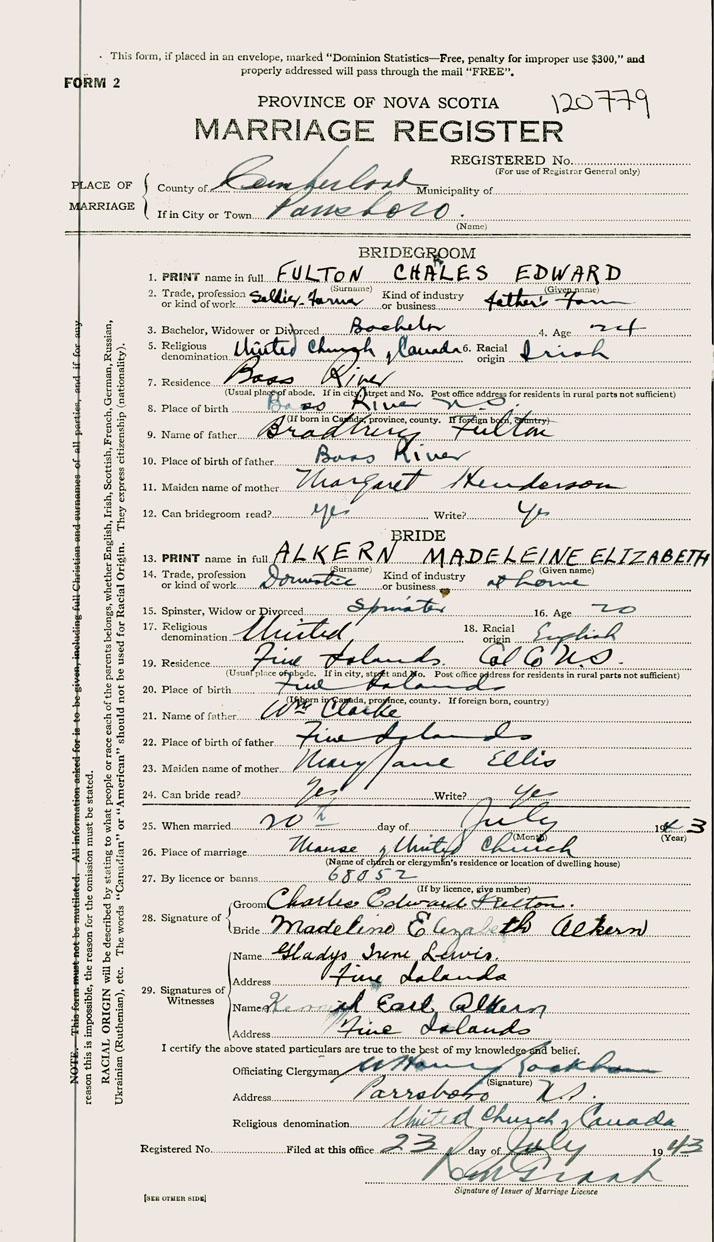 This form, if placed in an envelope, marked "Dominion Statistics—Free, penalty for improper use $300," and
properly addressed will pass through the mail "FREE".
FORM 2
PROVINCE OF NOVA SCOTIA 120779
MARRIAGE REGISTER
REGISTERED No.
(For use of Registrar General only)
PLACE OF MARRIAGE
County of Cumberland Municipality of
If in City or Town Parrsboro.
(Name)
BRIDEGROOM
1. PRINT name in full FULTON CHALES EDWARD
R
(Surname) (Given name)
2. Trade, profession or kind of work Soldier-Farmer Kind of industry or business father's Farm
3. Bachelor, Widower or Divorced Bachelor 4. Age 24
5. Religious denomination United Church of Canada 6. Racial origin Irish
7. Residence Bass River
(Usual place of abode. If in city, street and No. Post office address for residents in rural parts not sufficient)
8. Place of birth Bass River N.S.
(If born in Canada, province, county. If foreign born, country)
9. Name of father Bradbury Fulton
10. Place of birth of father Bass River
11. Maiden name of mother Margaret Henderson
12. Can bridegroom read? yes Write? Yes
BRIDE
13. PRINT name in full ALKERN MADELEINE ELIZABETH
(Surname) (Given name)
14. Trade, profession or kind of work Domestic Kind of industry or business at home
15. Spinster, Widow or Divorced Spinster 16. Age 20
17. Religious denomination United 18. Racial origin English
19. Residence Five Islands. Col Co N.S.
(Usual place of abode. If in city, street and No. Post office address for residents in rural parts not sufficient)
20. Place of birth Five Islands
(If born in Canada, province, county. If foreign born, country)
21. Name of father Wm Clarke
22. Place of birth of father Five Islands
23. Maiden name of mother Mary Jane Ellis
24. Can bride read? Yes Write? Yes
25. When married 20th day of July 1943
(Month) (Year)
26. Place of marriage Manse of United Church
(Name of church or clergyman's residence or location of dwelling house)
27. By licence or banns 68052
(If by licence, give number)
28. Signature of
Groom Charles Edward Fulton.
Bride Madeline Elizabeth Alkern
29. Signatures of Witnesses
Name Gladys Irene Lewis.
Address Five Islands
Name Earl Alkern
Address Five Islands
I certify the above stated particulars are true to the best of my knowledge and belief.
Officiating Clergyman
(Signature)
Address Parrsboro N.S.
Religious denomination United Church of Canada
Registered No. Filed at this office 23 day of July 1943
Signature of Issuer of Marriage Licence
[SEE OTHER SIDE]
NOTE. This form must not be mutilated. All information asked for is to be given, including full Christian and surnames of all parties, and if for any
reason this is impossible, the reason for the omission must be stated.
RACIAL ORIGIN will be described by stating to what people or race each of the parents belongs, whether English, Irish, Scottish, French, German, Russian,
Ukrainian (Ruthenian), etc. The words "Canadian" or "American" should not be used for Racial Origin. They express citizenship (nationality).